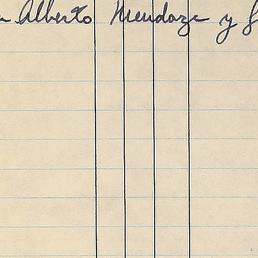 Alberto Mendoza y